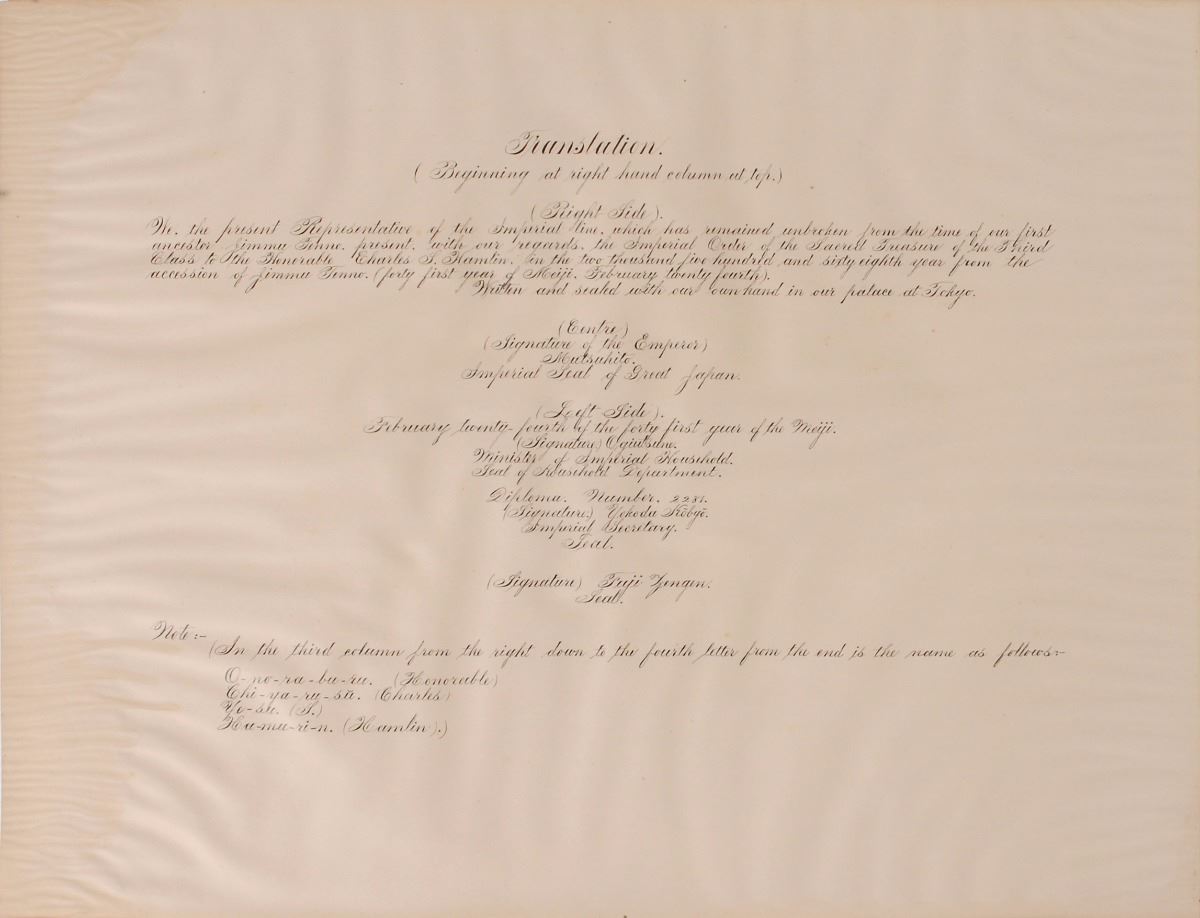 Translation.
(Beginning at right hand column at top.)
(Right Side).
We, the present Representative of the Imperial line, which has remained unbroken from the time of our first
ancestor Jimmu Tenno, present, with our regards, the Imperial Order of the Sacred Treasure of the Third
Class to the Honorable Charles S. Hamlin. In the two thousand five hundred and sixty eighth year from the
accession of Jimmu Tenno. (forty first year of Meiji, February twenty fourth).
Written and sealed with our own hand in our palace at Tokyo.
(Centre)
(Signature of the Emperor)
Mutsuhito.
Imperial Seal of Great Japan.
(Left Side).
February twenty-fourth of the forty first year of the Meiji.
(Signature)
Minister of Imperial Household.
Seal of Household Department.
Diploma. Number. 2281.
(Signature.) Yokoda Kōbyō.
Imperial Secretary.
Seal.
(Signature) Fuji Zengen.
Seal.
Note:-
(In the third column from the right down to the fourth letter from the end is the name as follows:-
O-no-ra-bu-ru. (Honorable)
Chi-ya-ru-su. (Charles)
Yo-su. (S.)
Ha-mu-ri-n. (Hamlin).)